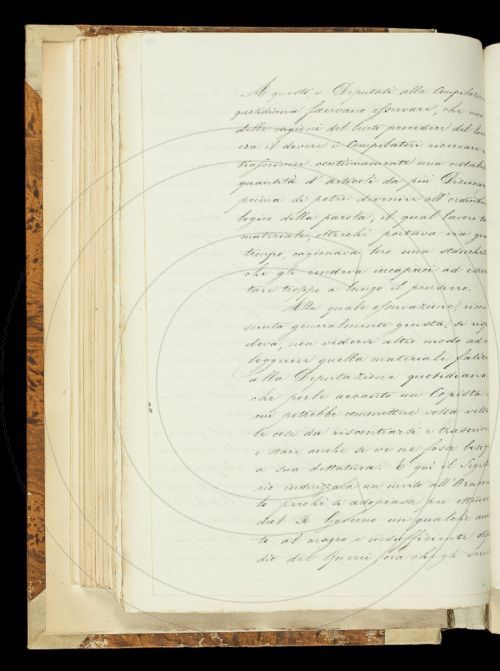 A questo i Deputati alla Compilazione
quotidiana facevano osservare, che una
delle cagioni del lento procedere del lavoro
era il dovere i Compilatori ricercare e
trascrivere continuamente una notabile
quantità d'articoli da più Dizionari
prima di poter divenire all'ordinamento
logico della parola; il qual lavoro tutto
materiale, oltreché portava via gran
tempo, cagionava loro una stanchezza
che gli rendeva incapaci ad eserci-
tare troppo a lungo il pensiero.
Alla quale osservazione, ricono-
sciuta generalmente giusta, si rispon-
deva, non vedersi altro modo ad al-
leggerire quella materiale fatica
alla Deputazione quotidiana
che porle accanto un Copista a
cui potrebbe commettere volta volta
le cose da riscontrarsi e trascriversi
e stare anche se ve ne fosse bisogno
a sua dettatura. E qui il Segreta-
rio indirizzava un invito all'Arciconso-
lo perché si adoprasse per ottenere
dal R. Governo un qualche aumen-
to al magro e insufficiente stipen-
dio del Guerci, ora che gli